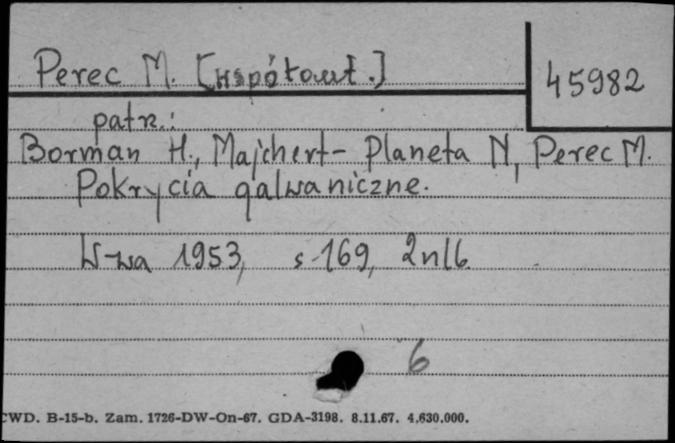 Perec M. [współaut.]
45982
patrz.:
Borman H., Majchert-Planeta N, Perec M.
Pokrycia galwaniczne.
W-wa 1953, s. 169, 2nlb.
6
CWD. B-15-b. Zam. 1726-DW-On-67. GDA-3198. 8.11.67. 4,630.000.